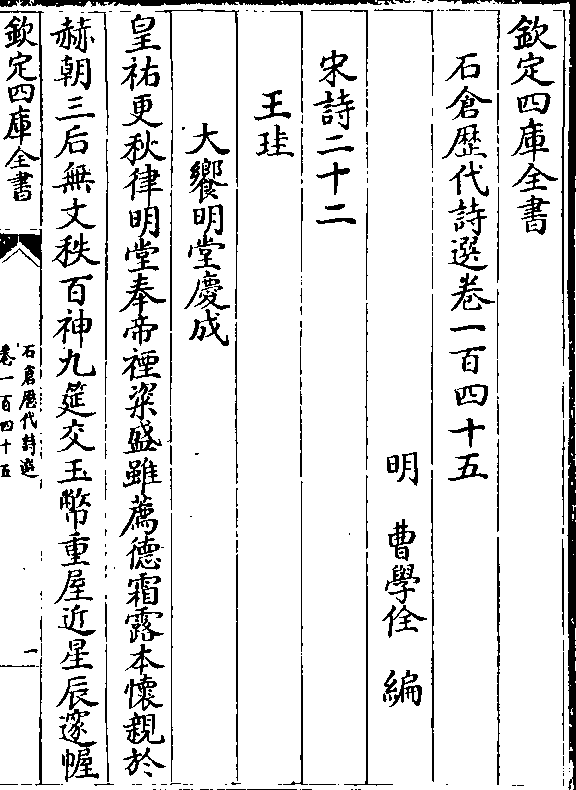 欽定四庫全書
石倉歴代詩選卷一百四十五
明 曹學佺 編
宋詩二十二
王珪
大饗明堂慶成
皇祐更秋律明堂奉帝禋粢盛雖薦德霜露本懷親於
赫朝三后無文秩百神九筵交玉幣重屋近星辰邃幄
欽定四庫全書
石倉歴代詩選
卷一百四十五
一